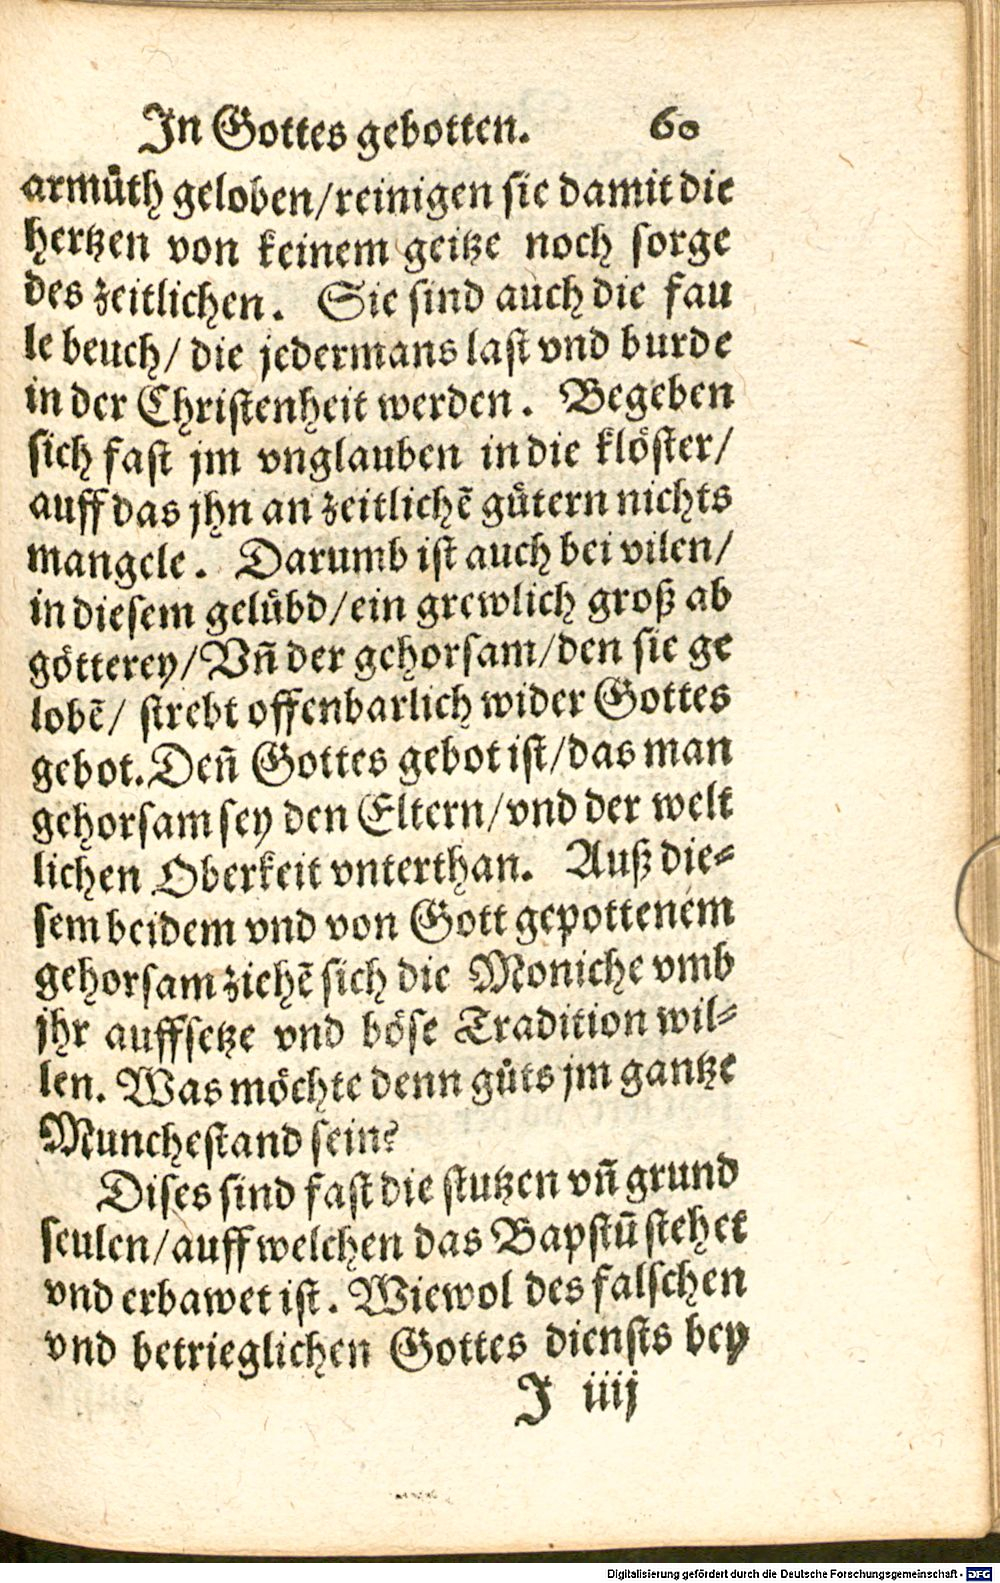 In Gottes gebotten. 60
armůth geloben/reinigen sie damit die
hertzen von keinem geitze noch sorge
des zeitlichen. Sie sind auch die fau
le beuch/ die jedermans last vnd burde
in der Christenheit werden. Begeben
sich fast jm vnglauben in die klöster/
auff das jhn an zeitlichē gütern nichts
mangele. Darumb ist auch bei vilen/
in diesem gelübd/ein grewlich groß ab
götterey/Vñ der gehorsam/den sie ge
lobē/ strebt offenbarlich wider Gottes
gebot. Deñ Gottes gebot ist/das man
gehorsam sey den Eltern/vnd der welt
lichen Oberkeit vnterthan. Auß die-
sem beidem vnd von Gott gepottenem
gehorsam ziehē sich die Moniche vmb
jhr auffsetze vnd böse Tradition wil-
len. Was möchte denn gůts jm gantze
Munchestand sein?
Dises sind fast die stutzen vñ grund
seulen/auff welchen das Bapstū stehet
vnd erbawet ist. Wiewol des falschen
vnd betrieglichen Gottes diensts bey
I iiij
Digitalisierung gefördert durch die Deutsche Forschungsgemeinschaft - DFG